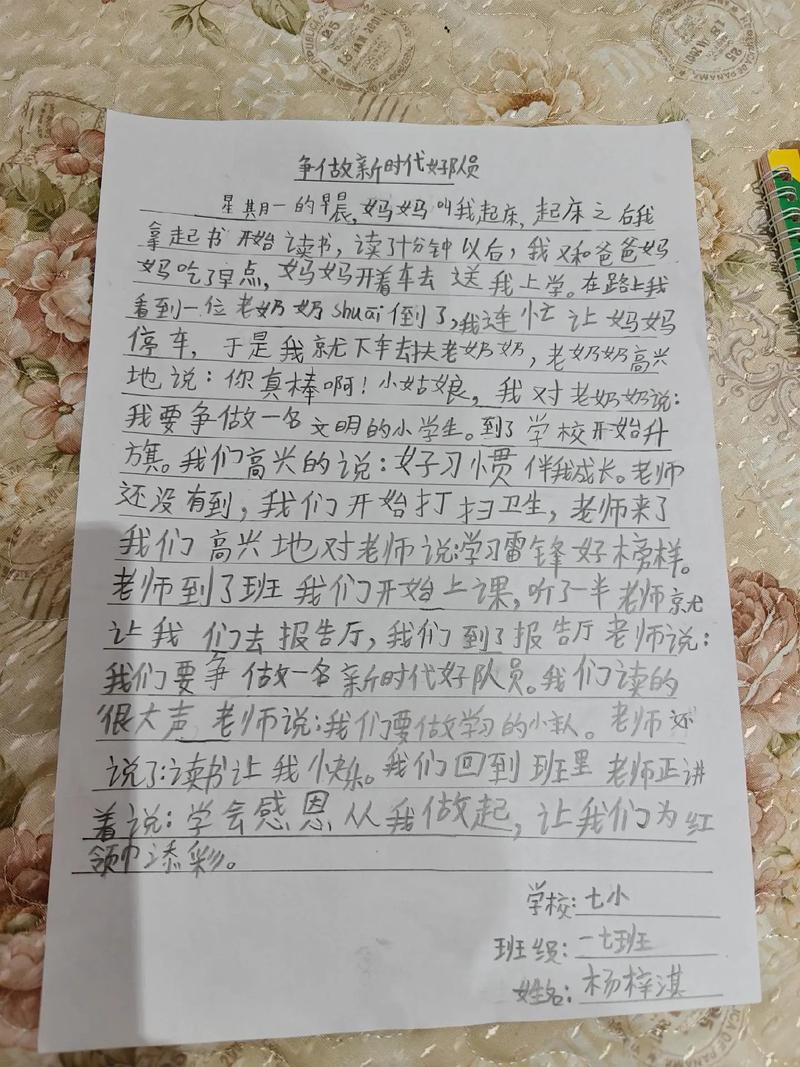 争做新时代好队员
星期一的早晨,妈妈叫我起床,起床之后我
拿起书开始读书,读了十分钟以后,我又和爸爸妈
妈吃了早点,妈妈开着车去送我上学。在路上我
看到一位老奶奶shuāi倒了,我连忙让妈妈
停车,于是我就下车去扶老奶奶,老奶奶高兴
地说:你真棒啊!小姑娘,我对老奶奶说:
我要争做一名文明的小学生。到了学校开始升
旗。我们高兴的说:好习惯伴我成长。老师
还没有到,我们开始打扫卫生,老师来了
我们高兴地对老师说:学习雷锋好榜样。
老师到了班我们开始上课,听了一半老师就
让我们去报告厅,我们到了报告厅老师说:
我们要争做一名新时代好队员。我们读的
很大声老师说:我们要做学习的小主人。老师还
说了:读书让我快乐。我们回到班里老师正讲
着说:学会感恩从我做起,让我们为红
领巾添彩。
学校:七小
班级:一七班
姓名:杨梓淇